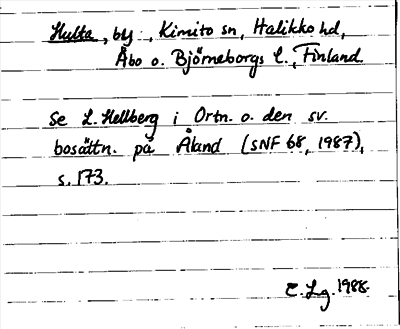 Hulta, by, Kimito sn, Halikko hd,
Åbo o. Björneborgs l., Finland.
Se L. Hellberg i Ortn. o. den sv.
bosättn. på Åland (SNF 68, 1987),
s. 173.
E. Lg. 1988.